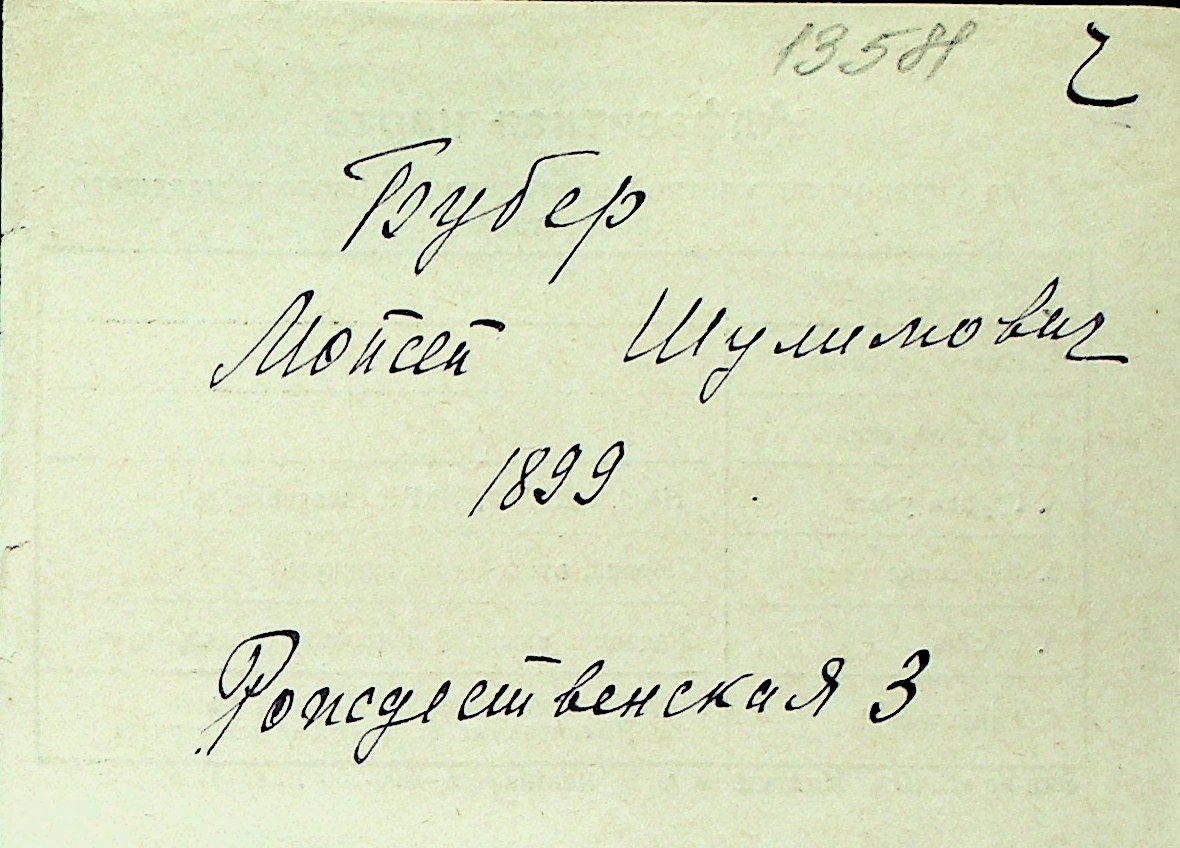 13581 2
Бубер
Мойсей Шулимович
1899
Рождественская 3